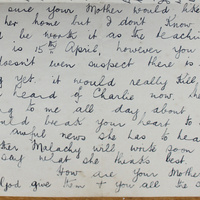 sure your Mother would like
her home but I don't know
d be worth it as the teachin
is 15th April, however you
doesn't even suspect there is
g yet. it would really kill
heard of Charlie now, the
g to me all day about
uld break your heart to
useful news she has to hea
ther Malachy will write soon
say what she thinks best.
How are your Mother
God give them + you all the